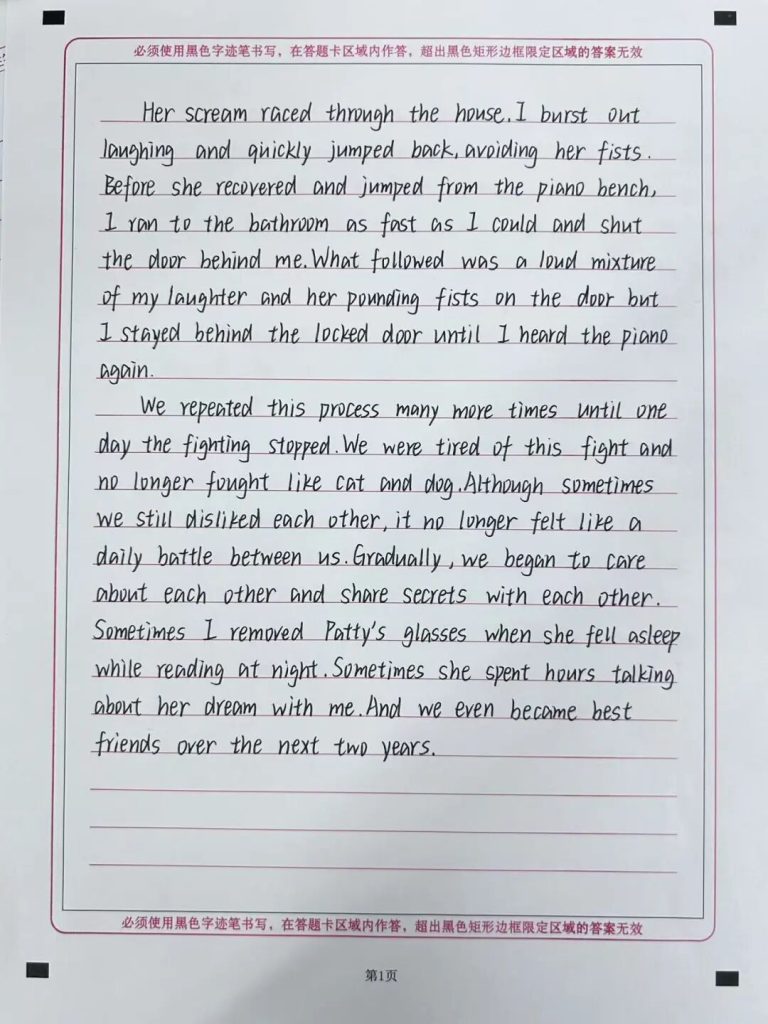 必须使用黑色字迹笔书写，在答题卡区域内作答，超出黑色矩形边框限定区域的答案无效
Her scream raced through the house. I burst out
laughing and quickly jumped back, avoiding her fists.
Before she recovered and jumped from the piano bench,
I ran to the bathroom as fast as I could and shut
the door behind me. What followed was a loud mixture
of my laughter and her pounding fists on the door but
I stayed behind the locked door until I heard the piano
again.
We repeated this process many more times until one
day the fighting stopped. We were tired of this fight and
no longer fought like cat and dog. Although sometimes
we still disliked each other, it no longer felt like a
daily battle between us. Gradually, we began to care
about each other and share secrets with each other.
Sometimes I removed Patty's glasses when she fell asleep
while reading at night. Sometimes she spent hours talking
about her dream with me. And we even became best
friends over the next two years.
必须使用黑色字迹笔书写，在答题卡区域内作答，超出黑色矩形边框限定区域的答案无效
第1页